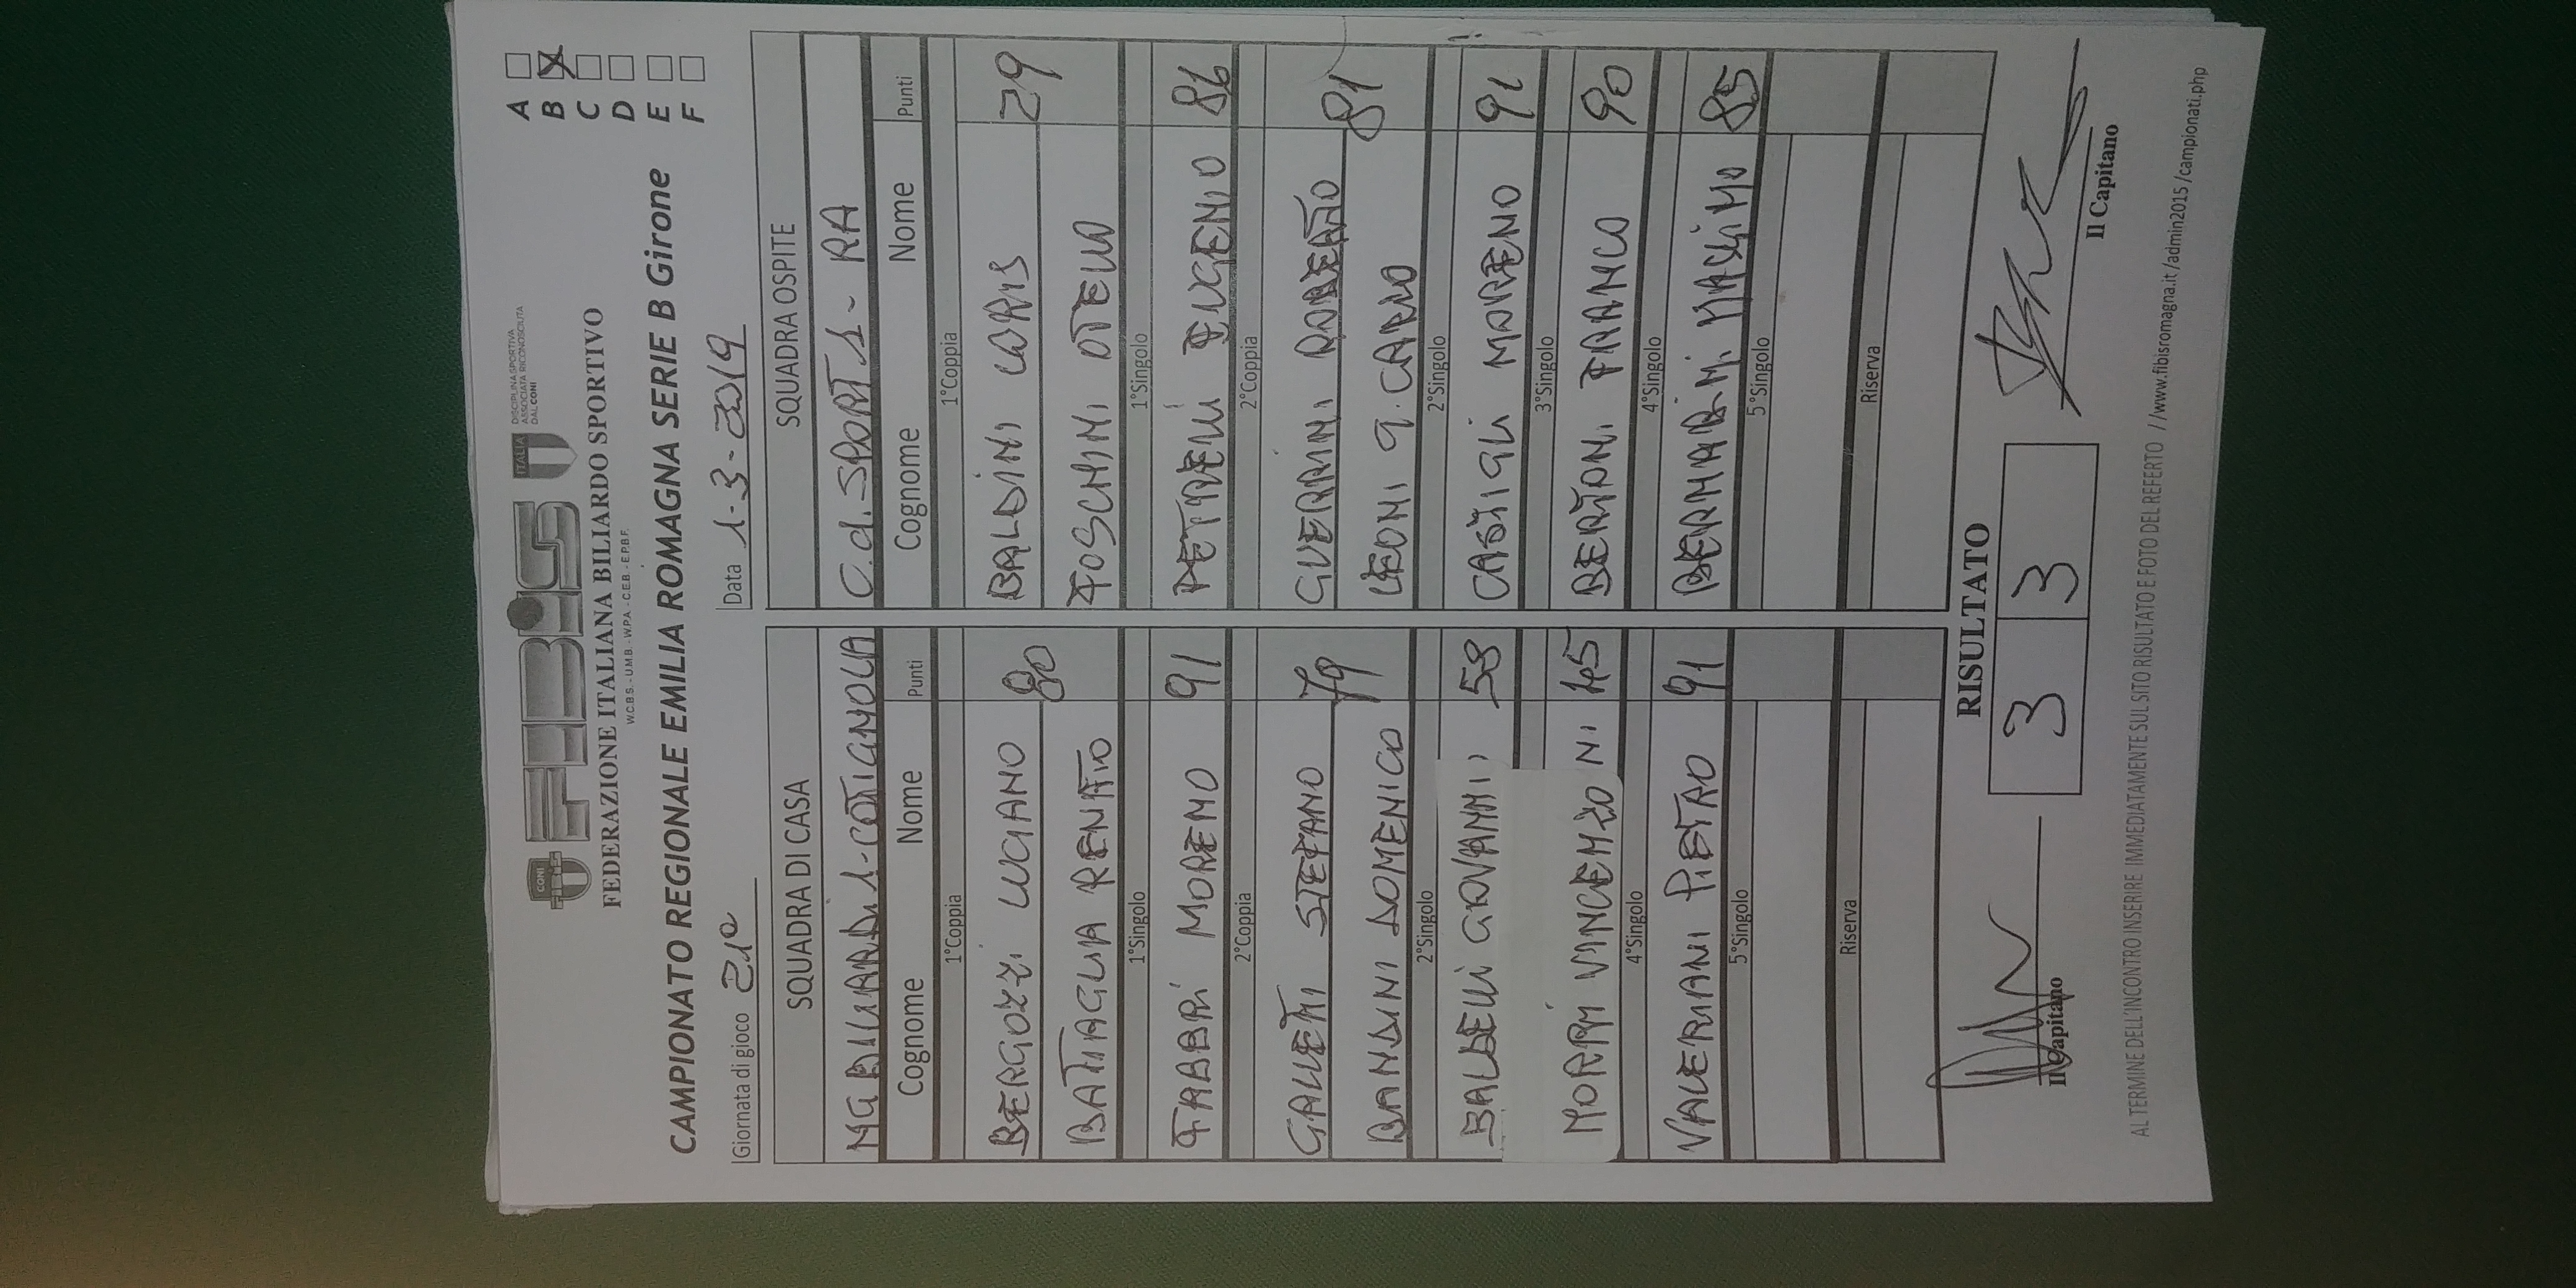 FIBiS
ITALIA
CONI
DISCIPLINA SPORTIVA
ASSOCIATA RICONOSCIUTA
DAL CONI
FEDERAZIONE ITALIANA BILIARDO SPORTIVO
W.C.B.S. - U.M.B. - W.P.A. - C.E.B. - E.P.B.F.
A
B X
C
D
E
F
CAMPIONATO REGIONALE EMILIA ROMAGNA SERIE B Girone
Giornata di gioco 21ª
Data 1-3-2019
SQUADRA DI CASA
MG BILIARDI 1-COTIGNOLA
Cognome Nome Punti
1°Coppia
BERGOZZI LUCIANO 80
BATTAGLIA RENATO
1°Singolo
FABBRI MORENO 91
2°Coppia
GALLETTI STEFANO 79
BANDINI DOMENICO
2°Singolo
BALDELLI GIOVANNI 58
MORRI VINCENZO NI 45
4°Singolo
VALERIANI PIETRO 91
5°Singolo
Riserva
SQUADRA OSPITE
C.d. SPORT 1 - RA
Cognome Nome Punti
1°Coppia
BALDINI LORIS 29
FOSCHINI OTELLO
1°Singolo
PETTRELLI EUGENIO 86
2°Coppia
GUERRINI ROBERTO 81
LEONI G. CARLO
2°Singolo
CASTIGLI MORENO 91
3°Singolo
BERTONI FRANCO 90
4°Singolo
BERNABINI MASSIMO 85
5°Singolo
Riserva
RISULTATO
3 3
Il Capitano
Il Capitano
AL TERMINE DELL'INCONTRO INSERIRE IMMEDIATAMENTE SUL SITO RISULTATO E FOTO DEL REFERTO //www.fibisromagna.it/admin2015/campionati.php